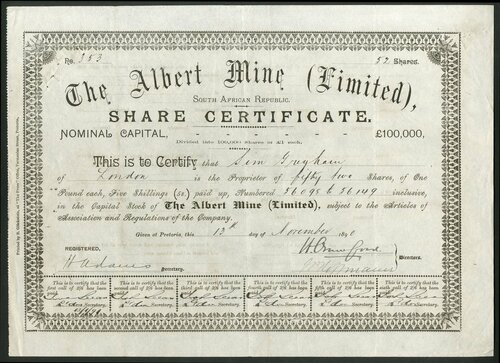 No. 353 52 Shares.
The Albert Mine (Limited),
South African Republic.
SHARE CERTIFICATE.
NOMINAL CAPITAL, - - - - - - £100,000,
Divided into 100,000 Shares in £1 each.
This is to Certify that Sim
of London is the Proprietor of fifty two Shares, of One
Pound each, Five Shillings (5s.) paid up, Numbered 56098 to 56149 inclusive,
in the Capital Stock of The Albert Mine (Limited), subject to the Articles of
Association and Regulations of the Company.
Given at Pretoria, this 13th day of November 1890
REGISTERED,
H Adams
Secretary.
Directors.
This is to certify that the first call of 2/6 has been
This is to certify that the second call of 2/6 has been
This is to certify that the third call of 2/6 has been
This is to certify that the fourth call of 2/6 has been
This is to certify that the fifth call of 2/6 has been
This is to certify that the sixth call of 2/6 has been
Secretary. Secretary. Secretary. Secretary. Secretary. Secretary.